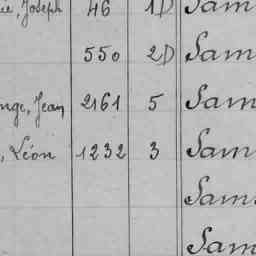 ie, Joseph 46 1D Sam
550 2D Sam
nge, Jean 2161 5 Sam
, Léon 1232 3 Sam
Sam
Sam